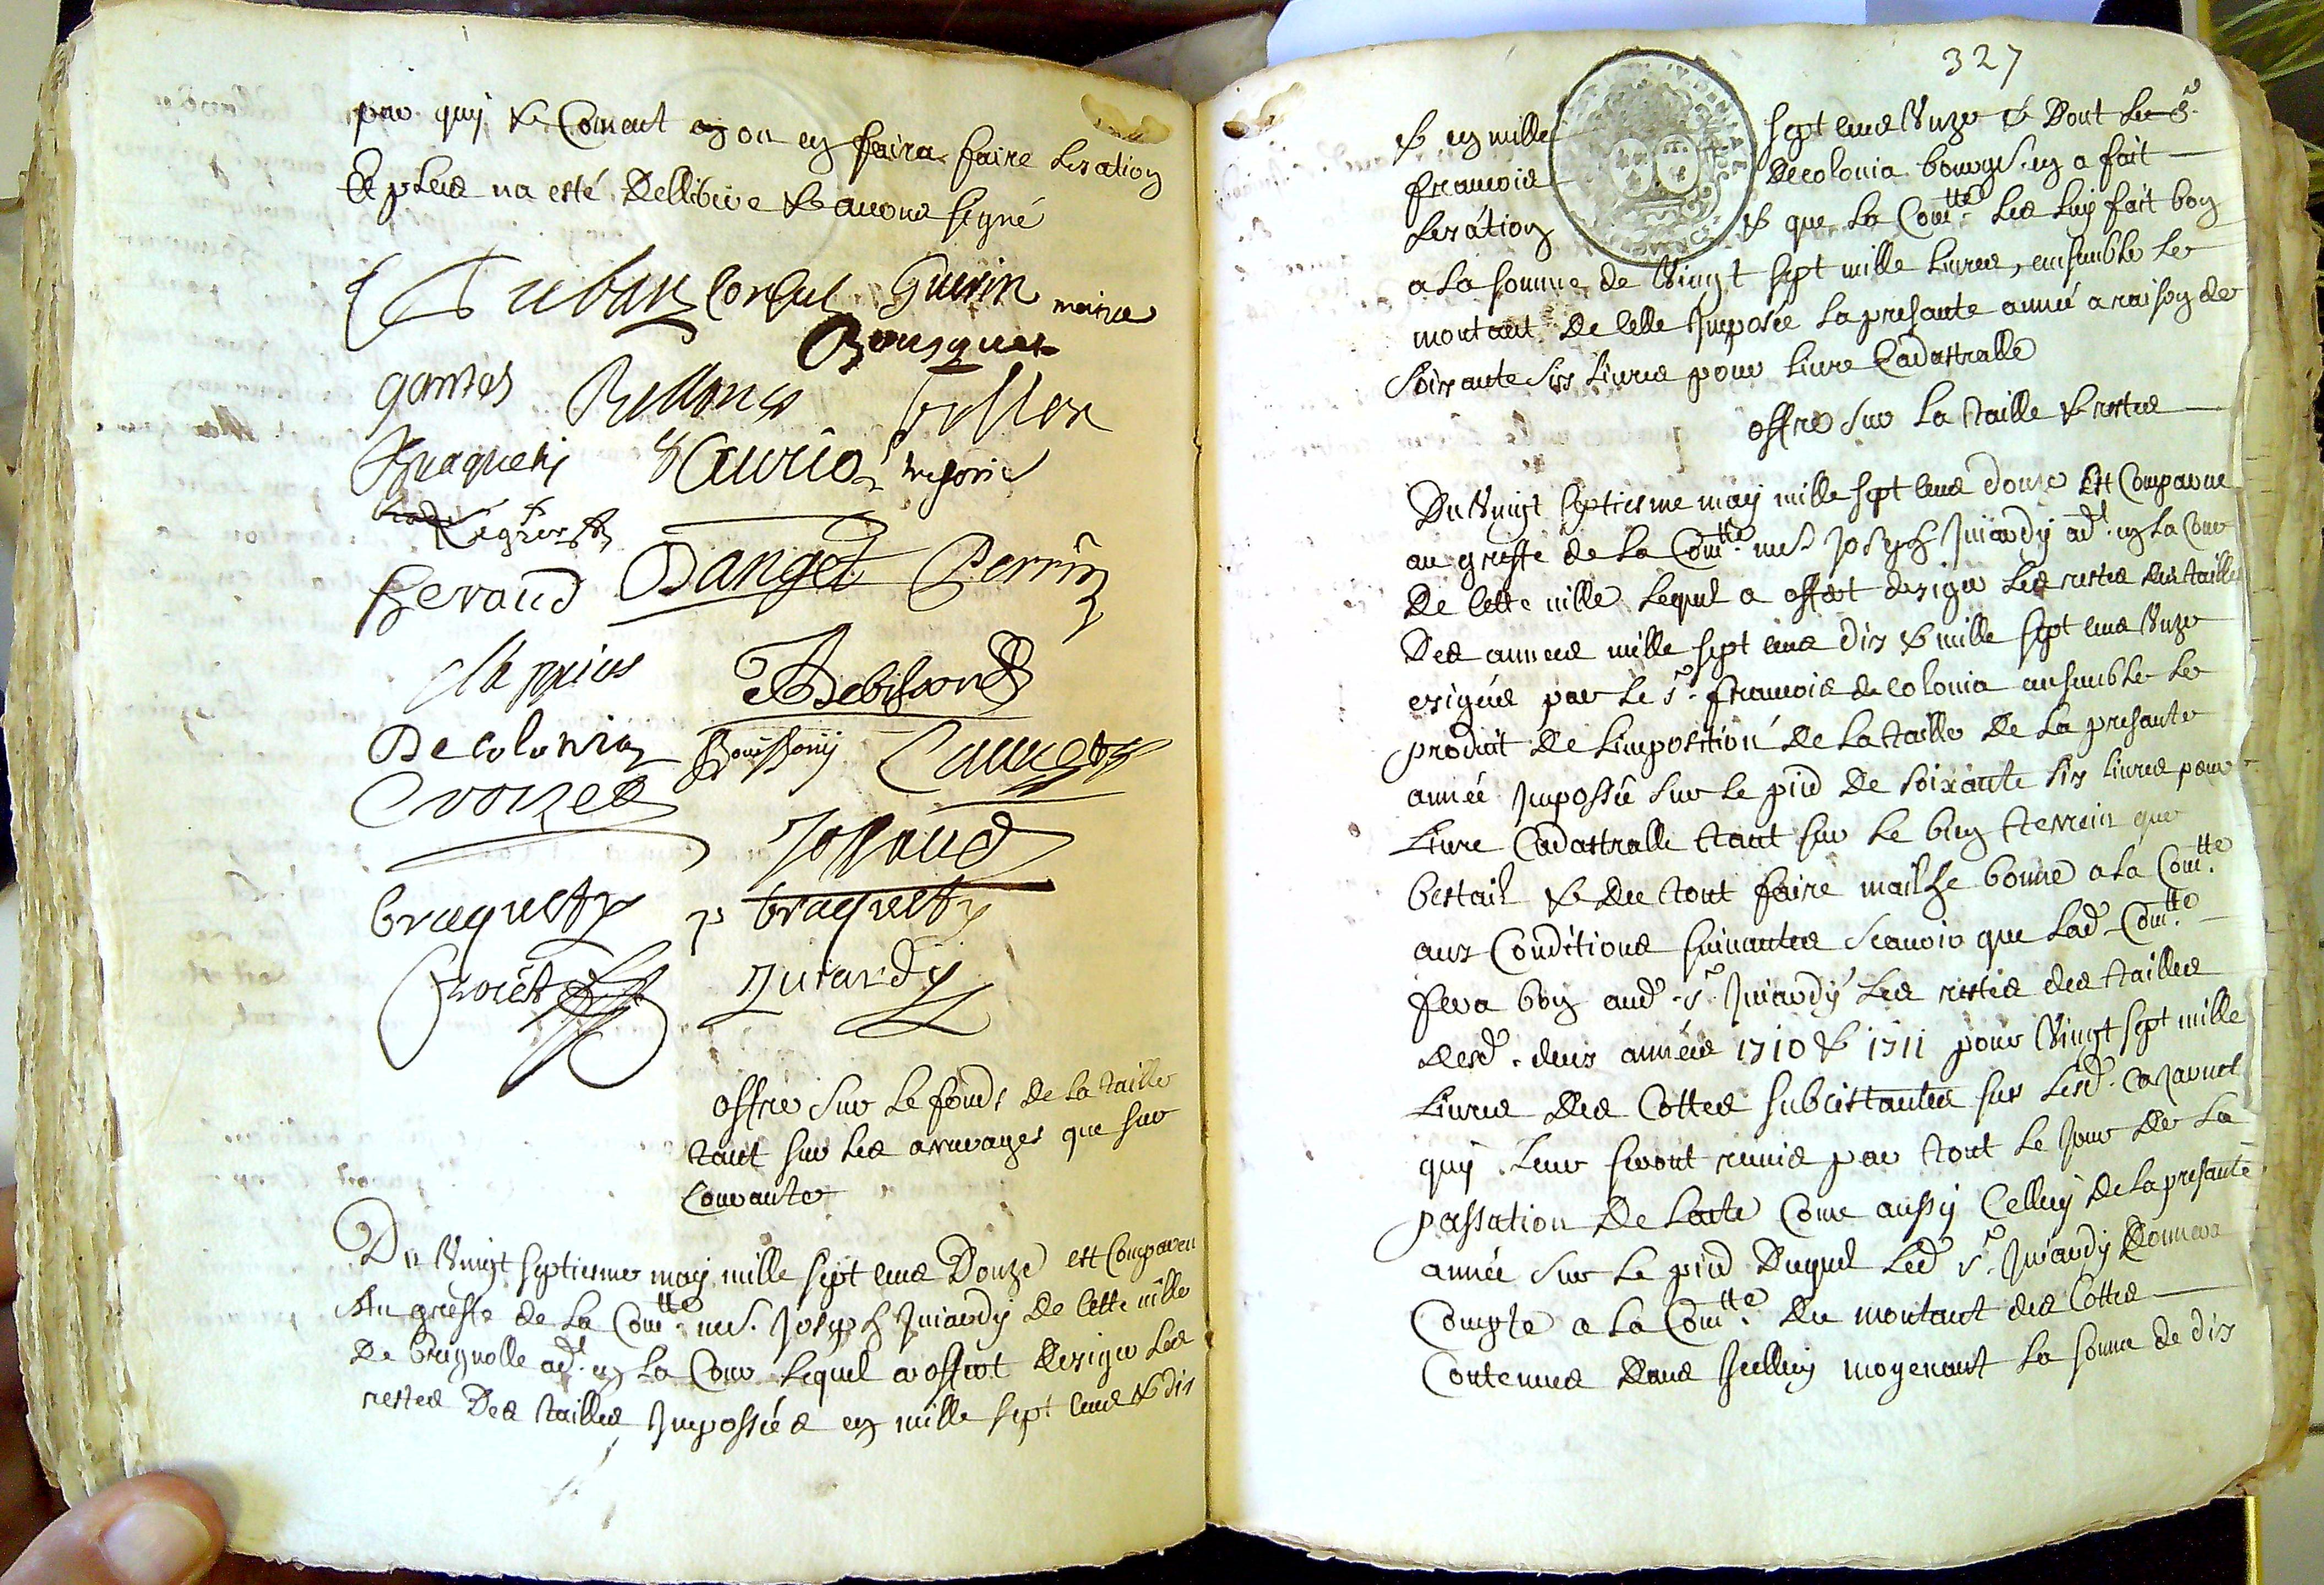 par quy & Coment on en faira faire lexation
Et plus na esté dellibere & avons signé
Consul Guerin maire
Bousquet
gantes
Braquety
Regis
Geraud Danget Perrin
Clappiers
Decolonia
Crozes
Jossaud
braquety p braquety
Juiardy
offre sur le fonds de la taille
tant sur les arrerages que sur
Courante
Du Vingt septiesme may mille sept cens Douze est Comparu
Au greffe de la Comtté me Joseph Juiardy de cette ville
De brignolle adt en la Cour lequel a offert dexiger les
restes Des tailles Imposées en mille sept cens & dix
327
& en mille sept cens Unze & Dont le sr
francois Decolonia bourgs en a fait
lexation & que la Comtté les luy fait bon
a la somme de Vingt sept mille livres, ensemble le
montant De celle Imposée la presante année a raison de
soixante six livres pour livre Cadastralle
offre sur la taille & restes
Du Vingt septiesme may mille sept cens douze Est Comparu
au greffe de la Comtté me Joseph Juiardy adt en la Cour
De cette ville lequel a offert dexiger les restes des tailles
Des années mille sept cens dix & mille sept cens Unze
exigées par le sr francois decolonia ensemble le
produit De limposition De la taille De la presante
année Impossée sur le pied De soixante six livres pour
livre Cadastralle tant sur le bien terrein que
bestail & Du tout faire mailhe bonne a la Comtté
aux Conditions suivantes scavoir que lad Comtté
fera bon aud sr Juiardy les restes des tailles
desd deux années 1710 & 1711 pour Vingt sept mille
livres Des Cottes subcistantes sur lesd cazarnet
quy luy seront remis par tout le Jour de la
passation De lacte Come aussy Celluy de la presante
année sur le pied Duquel led sr Juiardy Donnera
Compte a la Comtté Du montant des Cottes
Contenues Dans Icelluy moyenant la somme de dix